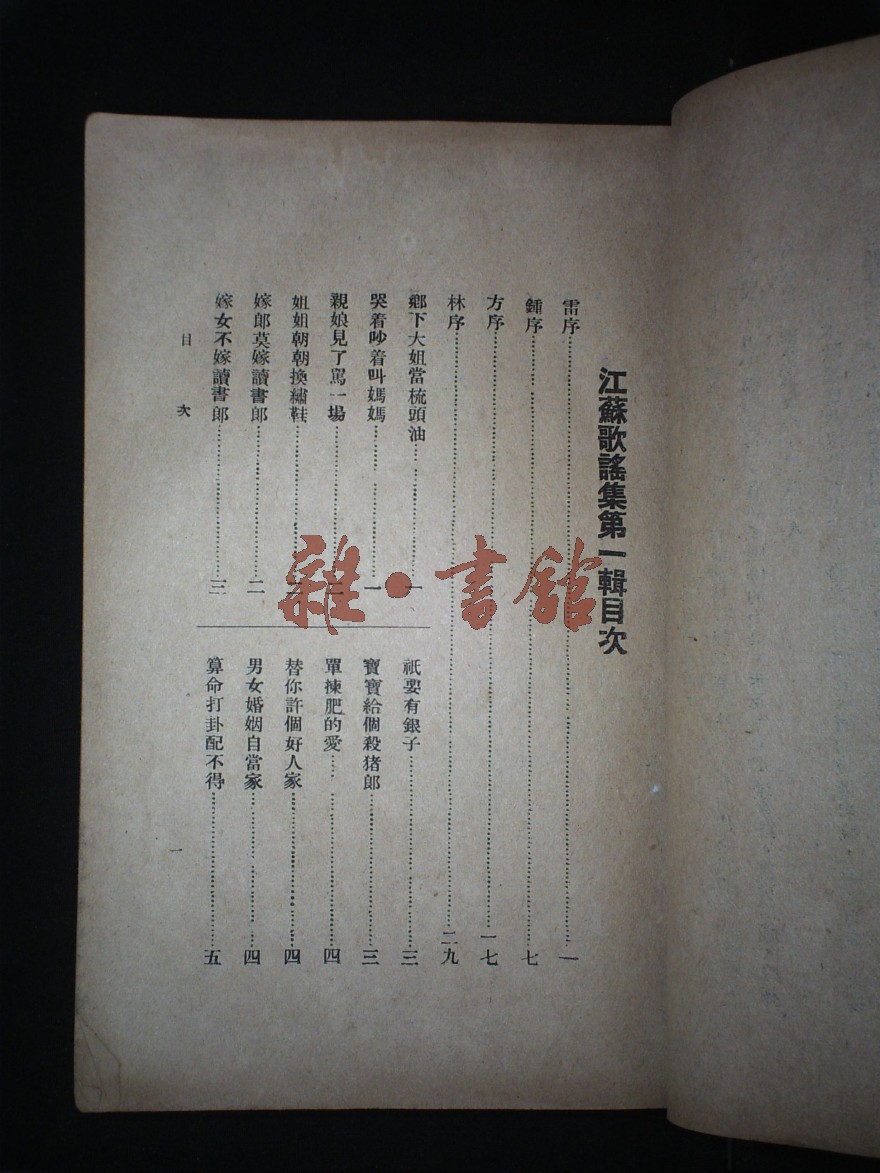 江蘇歌謠集第一輯目次
雷序……一
鍾序……七
方序……一七
林序……二九
鄉下大姐當梳頭油……一
哭着吵着叫媽媽……一
親娘見了罵一場……二
姐姐朝朝換繡鞋……二
嫁郎莫嫁讀書郎……二
嫁女不嫁讀書郎……三
祇要有銀子……三
寶寶給個殺猪郎……三
單揀肥的愛……四
替你許個好人家……四
男女婚姻自當家……四
算命打卦配不得……五
目次
一
雜·書館